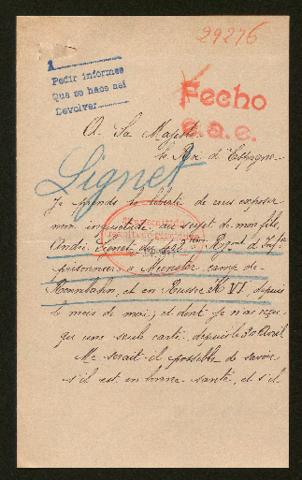 29276
1
Pedir informes
Que se hace así
Devolver
Fecho
a.a.c.
A Sa Majesté
le Roi d'Espagne
Lignet
Je prends la liberté de vous exposer
mon inquiétude au sujet de mon fils,
André Lignet du
prisonnier à Munster camp de
Rennbahn, et en Russie K VI, depuis
le mois de mai; et dont je n'ai reçu
que une seule carte, depuis le 30 Avril.
Me serait il possible de savoir
s'il est en bonne santé, et s'il